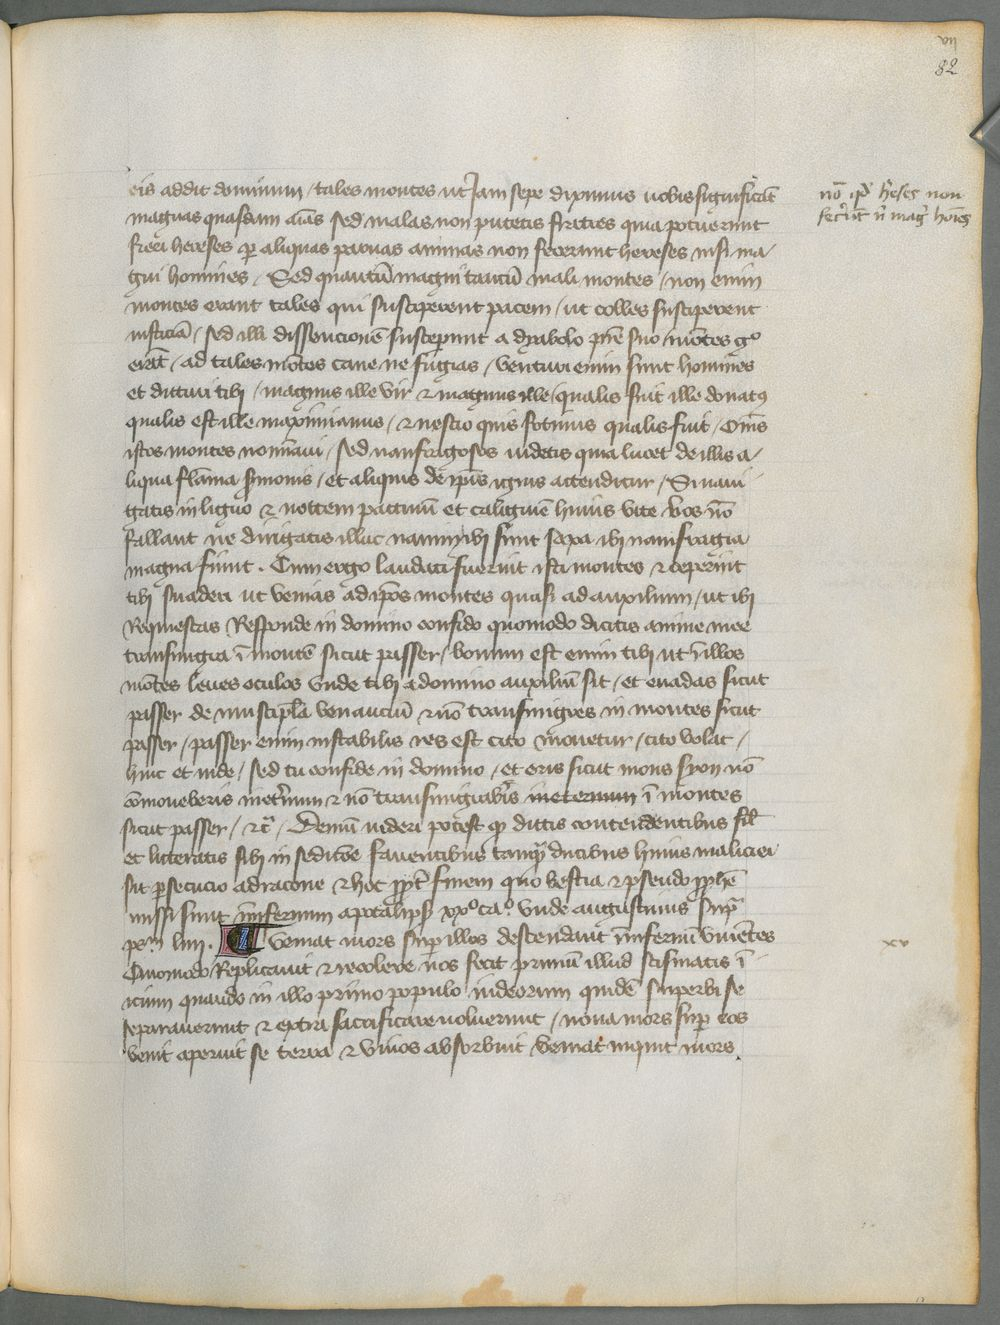 vii
82
eis addit dominum / tales montes ut Jam sepe diximus nobis significāt
magnas quasdam aīas sed malas non putetis frātres quia potuerunt
fieri hereses p̲ aliquas paruas animas non fecerunt hereses nisi ma
gni homines / Sed quantū magni tantū mali montes / non enim
montes erant tales qui susciperent pacem / ut colles susciperent
iusticiā / sed illi dissencionē susceperunt a dyabolo pr̄e suo mōtes gº
erāt / ad tales mōtes caue ne fugias / venturi enim sunt homines
et dicturi tibi / magnus ille vir & magnus ille / qualis fuit ille donatꝰ
qualis est ille maximianus / & nescio quis fotinus qualis fuit / Om̄s
istos montes nominaui / sed naufragosos uidetis quia lucet de illis a /
liqua flāma sermonis / et aliquis de ip̄is ignis accenditur / Si naui
gatis in ligno & noctem patimini et caliginē huius vite vos nō
fallant ne dirigatis illuc nauim ibi sunt saxa ibi naufragia
magna fiunt . Cum ergo laudati fuerint isti montes & ceperint
tibi suaderi ut venias ad ip̄os montes quasi ad auxilium / ut ibi
Requiescas Responde in domino confido quomodo dicitis anime mee
transmigra ī montē sicut passer / bonum est enim tibi ut ī illos
mōtes leues oculos vnde tibi a domino auxiliū sit / et euadas sicut
passer de muscipl̄a venanciū & nō transmigres in montes sicut
passer / passer enim instabilis res est cito mouetur / cito volat /
huc et inde / sed tu confide in domino / et eris sicut mons syon nō
cōmoueberis inet̄num & nō transmigrabis ineternum ī montes
sicut passer / &c̄ / Demū uideri potest q̲ dictis contendentibus sil̄
et litteratis sibi in sedicōe fauentibus tamq̄ ducibus huius maliciei
sit p̲secucio a dracone & hoc ppt̄ finem quo bestia & pseudo pphē
missi sunt īinfernum apocalips̄ xxº caº. vnde augustinus sup̄
psm̄ liiii . Veniat mors sup̲ illos descendant īinfernū viuentes
Quomodo Replicauit & recolere nos fecit primū illud scismatis ī
icium quando in illo primo populo iudeorum quidē superbi se
separauerunt & extra sacrificare uoluerunt / noua mors sup̲ eos
venit aperuit se terra & viuos absorbuit veniat inquit mors
nō q̲ h̄eses non
fecer̄t n̄ mag̅ hoīes
xv